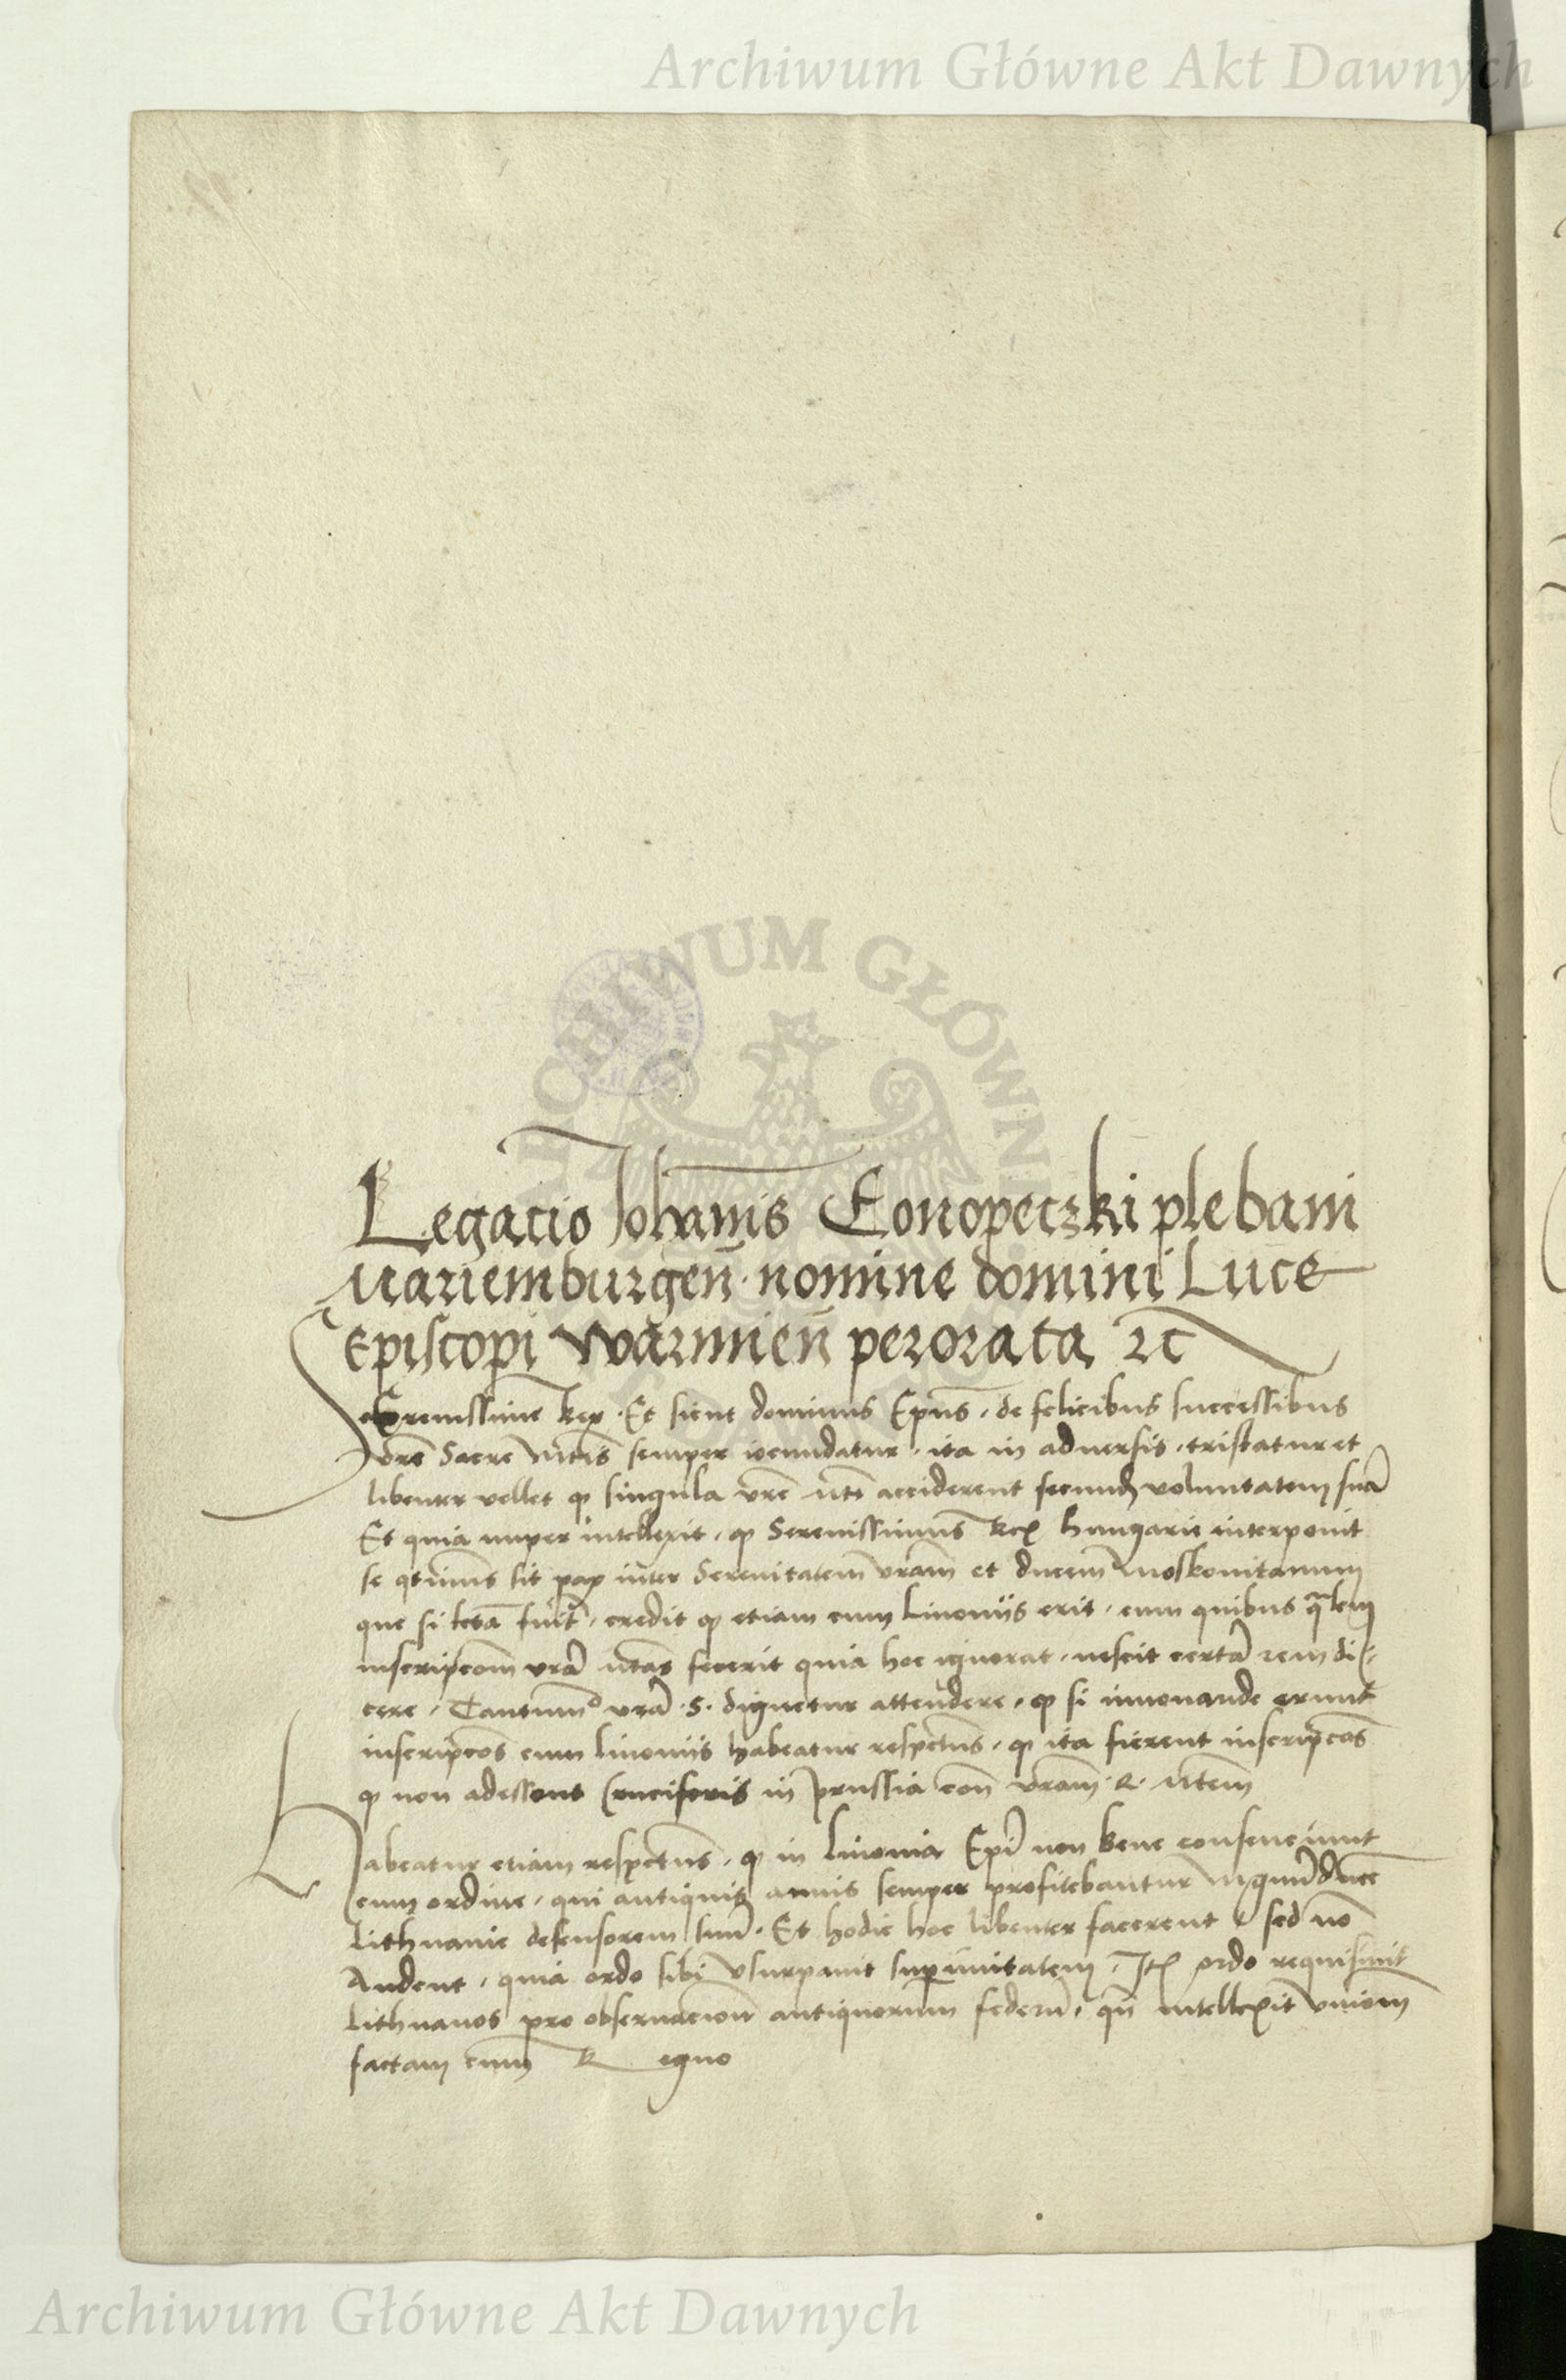 Archiwum Główne Akt Dawnych
ARCHIWUM GŁÓWNE
Legacio Johannis Conopeczki plebani
Mariemburgen̄ nomine domini Luce
Episcopi Warmien̄ perorata ꝛc
Serenissime Rex. Et sicut dominus Ep̄us, de felicibus successibus
vr̄e Sacre Mt̄is semper iocundatur, ita in adversis, tristatur et
libenter vellet ꝙ singula vr̄e Mt̄i acciderent secundꝫ voluntatem suā
Et quia nuper intellexit, ꝙ Serenissimus Rex Hungarie interponit
se qtinus sit pax inter Serenitatem vrām et ducem Moskouitanum
que si fctā fu'it, credit ꝙ etiam cum Liuoniis erit, cum quibus qualem
inscripcōm vrā Mtas fecerit quia hoc ignorat, nescit certā rem di⸗
cere, Tantumo vrā .S. dignetur attendere, ꝙ si innouande erunt
inscripcōes cum Liuoniis habeatur respectus, ꝙ ita fierent inscripcōes
ꝙ non adessent Cruciferis in Prussia con̄ vrām .R. Mtem
Habeatur etiam respectus, ꝙ in Liuonia Epī non bene conueniunt
cum ordine, qui antiquis annis semper profitebantur Mgnū ducē
Lithuanie defensorem suū. Et hodie hoc libenter facerent sed nō
Audent, quia ordo sibi vsurpauit superioritatem, Itē ordo requisiuit
Lithuanos pro obseruacione antiquorum federū, qn̄ intellexit vniom̄
factam cum Regno
Archiwum Główne Akt Dawnych